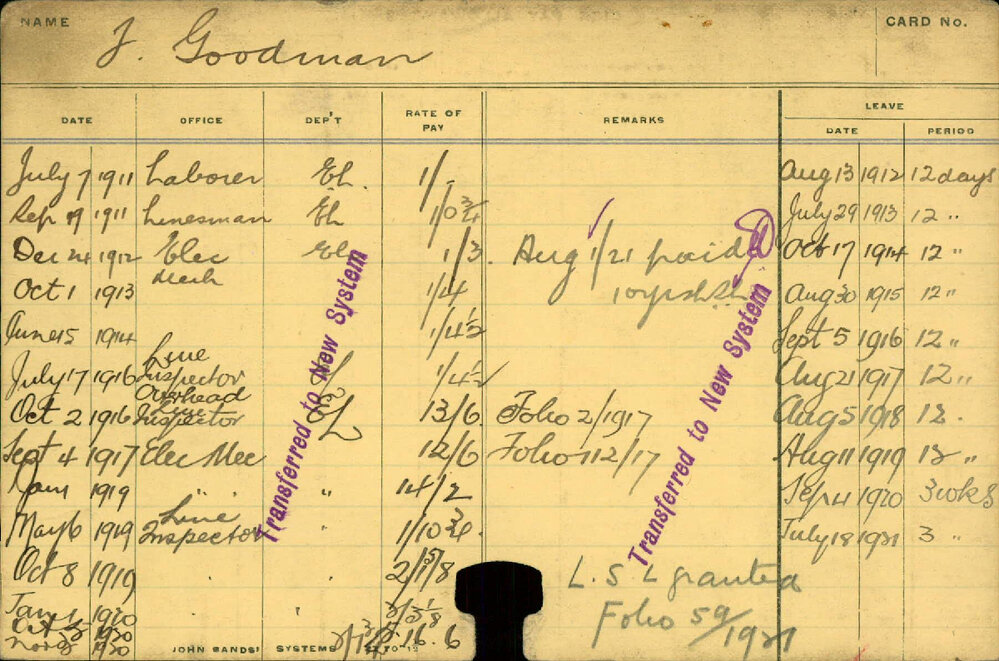 NAME J. Goodman CARD No.
DATE OFFICE DEP'T RATE OF PAY REMARKS LEAVE
DATE PERIOD
July 7 1911 Laborer El. 1/- Aug 13 1912 12 days
Sep 19 1911 Linesman El 1/0 3/4 July 29 1913 12 "
Dec 24 1912 Elec Mech El 1/3 Aug 1/21 paid Oct 17 1914 12 "
Oct 1 1913 1/4 Aug 30 1915 12 "
June 15 1914 1/4 1/2 Sept 5 1916 12 "
July 17 1916 Line Inspector 1/4 1/2 Aug 21 1917 12 "
Oct 2 1916 Overhead Line Inspector EL 13/6 Folio 2/1917 Aug 5 1918 12.
Sept 4 1917 Elec Mec 12/6 Folio 112/17 Aug 11 1919 12 "
Jany 1919 " " " 14/2 Sep 4 1920 3 wks
May 6 1919 Line Inspector " 1/10 3/4 July 18 1921 3 "
Oct 8 1919 " " 2/1 5/8
L. S. L granted
Jany 1 1920 " " 2/3 1/8 Folio 59/1921
Oct 1920
Nov 1920 16. 6
JOHN SANDS' SYSTEMS
Transferred to New System
Transferred to New System